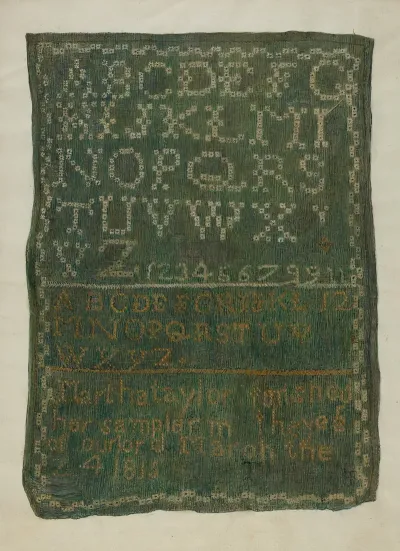 A B C D E F G
H I J K L M
N O P Q R S
T U V W X Y
Z 1 2 3 4 5 6 7
A B C D E F G H I J K L
M N O P Q R S T U V
W X Y Z
Martha taylor finished
her sampler in the
of our lord March the
4 1814